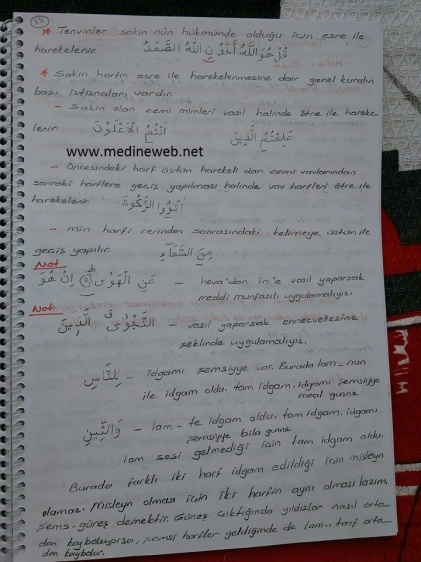 13
* Tenvinler sakin nûn hükmünde olduğu için esre ile
harekelenir. قُلْ هُوَ اللَّهُ أَحَدٌ نِ اللَّهُ الصَّمَدُ
* Sakin harfin esre ile harekelenmesine dair genel kuralın
bazı istisnaları vardır.
- Sakin olan cemi mimleri vasıl halinde ötre ile hareke-
lenir. عَلِمْتُمُ الَّذِينَ أَنْتُمُ الْأَعْلَوْنَ
www.medineweb.net
- Öncesindeki harf üstün harekeli olan cemi vavlarından
sonraki harflere geçiş yapılması halinde vav harfleri ötre ile
harekelenir. اٰتَوُا الزَّكٰوةَ
- min harfi cerinden sonrasındaki kelimeye üstün ile
geçiş yapılır. مِنَ السَّمَآءِ
Not
عَنِ الْهَوٰى اِنْ هُوَ - heva'dan in'e vasıl yaparsak
meddi munfasılı uygulamalıyız.
Not
التَّقْوٰى الَّذِينَ - vasıl yaparsak
şeklinde uygulamalıyız.
لِلنَّاسِ - idgamı şemsiyye var. Burada lam-nun
ile idgam oldu. tam idgam. idgamı şemsiyye
meal gunne
وَالتِّينِ - lam-te idgam oldu. tam idgam. idgamı
şemsiyye bila gunne
lam sesi gelmediği için tam idgam oldu.
Burada farklı iki harf idgam edildiği için misleyn
olamaz. Misleyn olması için iki harfin aynı olması lazım
Şems-güneş demektir. Güneş çıktığında yıldızlar nasıl orta-
dan kayboluyorsa, şemsi harfler geldiğinde de lam-ı tarif orta-
dan kaybolur.